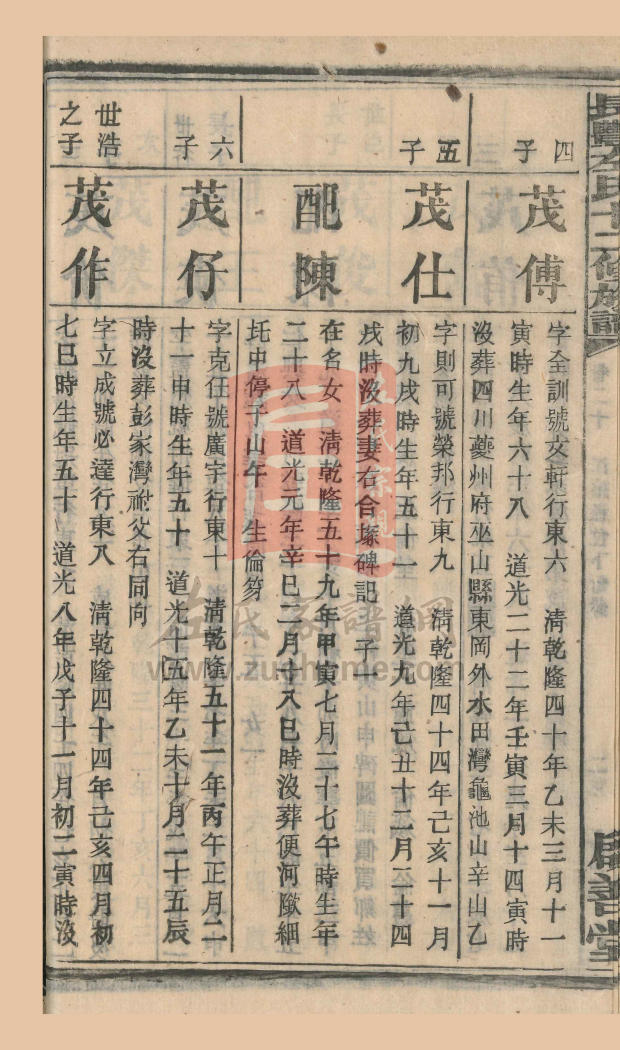 四子
茂傅
字全訓號文軒行東六　清乾隆四十年乙未三月十一
寅時生年六十八　道光二十二年壬寅三月十四寅時
沒葬四川夔州府巫山縣東岡外水田灣龜池山辛山乙
五子
茂仕
字則可號榮邦行東九　清乾隆四十四年己亥十一月
初九戌時生年五十一　道光九年己丑十二月二十四
戌時沒葬妻右合塚碑記　子一
配陳
在名女　清乾隆五十九年甲寅七月二十七午時生年
二十八　道光元年辛巳二月十八巳時沒葬便河隞細
圫中停子山午　生倫笏
六子
茂仔
字克任號廣宇行東十　清乾隆五十一年丙午正月二
十一申時生年五十　道光十五年乙未十月二十五辰
時沒葬彭家灣祔父右同向
世浩之子
茂作
字立成號必達行東八　清乾隆四十四年己亥四月初
七巳時生年五十　道光八年戊子十一月初二寅時沒
氏十二修族譜
卷二十
啟善堂
www.zupuhome.com